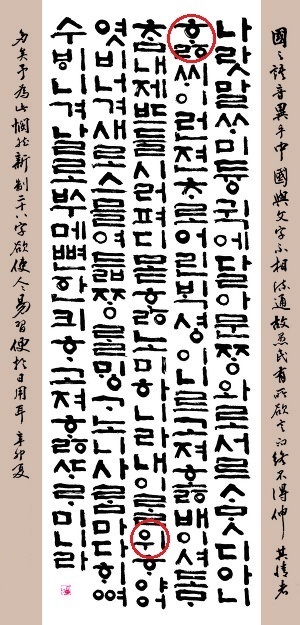 國之語音異乎中國與文字不相流通故愚民有所欲言而終不得伸其情者
나랏말ᄊᆞ미듕귁에달아문ᄍᆞᆼ와로서르ᄉᆞᄆᆞᆺ디아니
ᄒᆞᆯᄊᆡ이런젼ᄎᆞ로어린ᄇᆡᆨ셩이니르고져ᄒᆞᇙ배이셔도ᄆᆞ
ᄎᆞᆷ내제ᄠᅳ들시러펴디몯ᄒᆞᇙ노미하니라내이ᄅᆞᆯ위ᄒᆞ야어
엿비너겨새로스믈여듧ᄍᆞᆼᄅᆞᆯᄆᆡᆼᄀᆞ노니사ᄅᆞᆷ마다ᄒᆡᅇᅧ
수ᄫᅵ니겨날로ᄡᅮ메뼌한킈ᄒᆞ고져ᄒᆞᇙᄯᆞᄅᆞ미니라
多矣予爲此憫然新制二十八字欲使人易習便於日用耳 辛卯夏